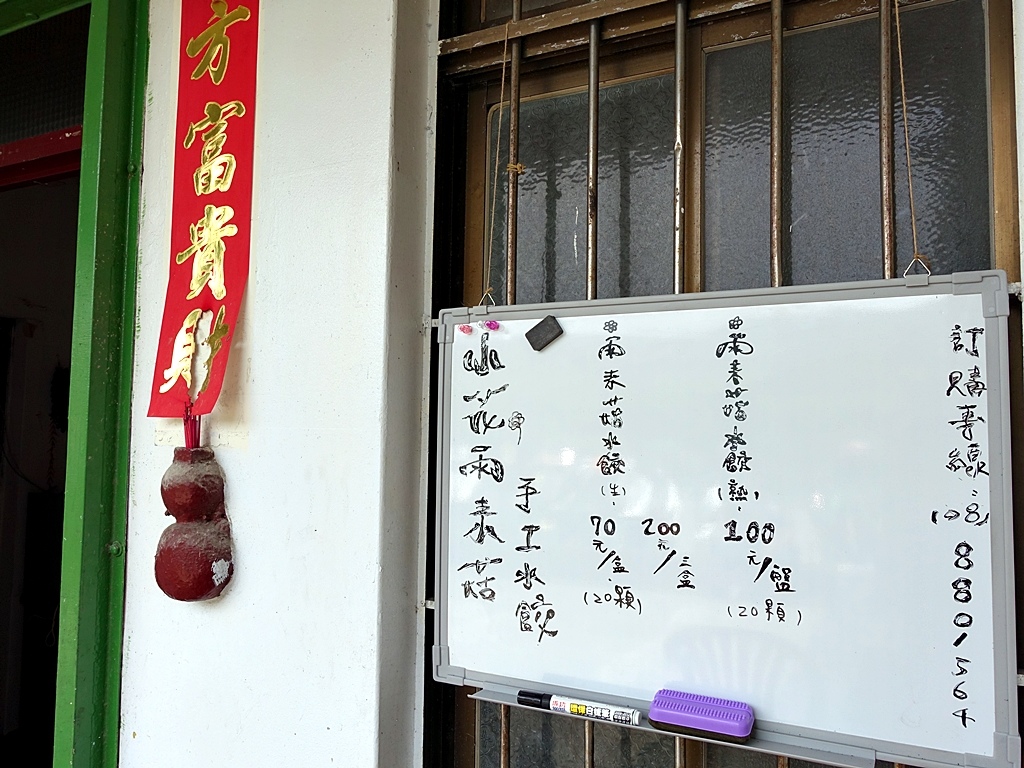 方富貴財
小花雨來菇
手工水餃
雨來菇水餃(生)
70元/盒
(20顆)
200元/三盒
雨來菇水餃(熟)
100元/盤
(20顆)
訂購專線:(08)8801564